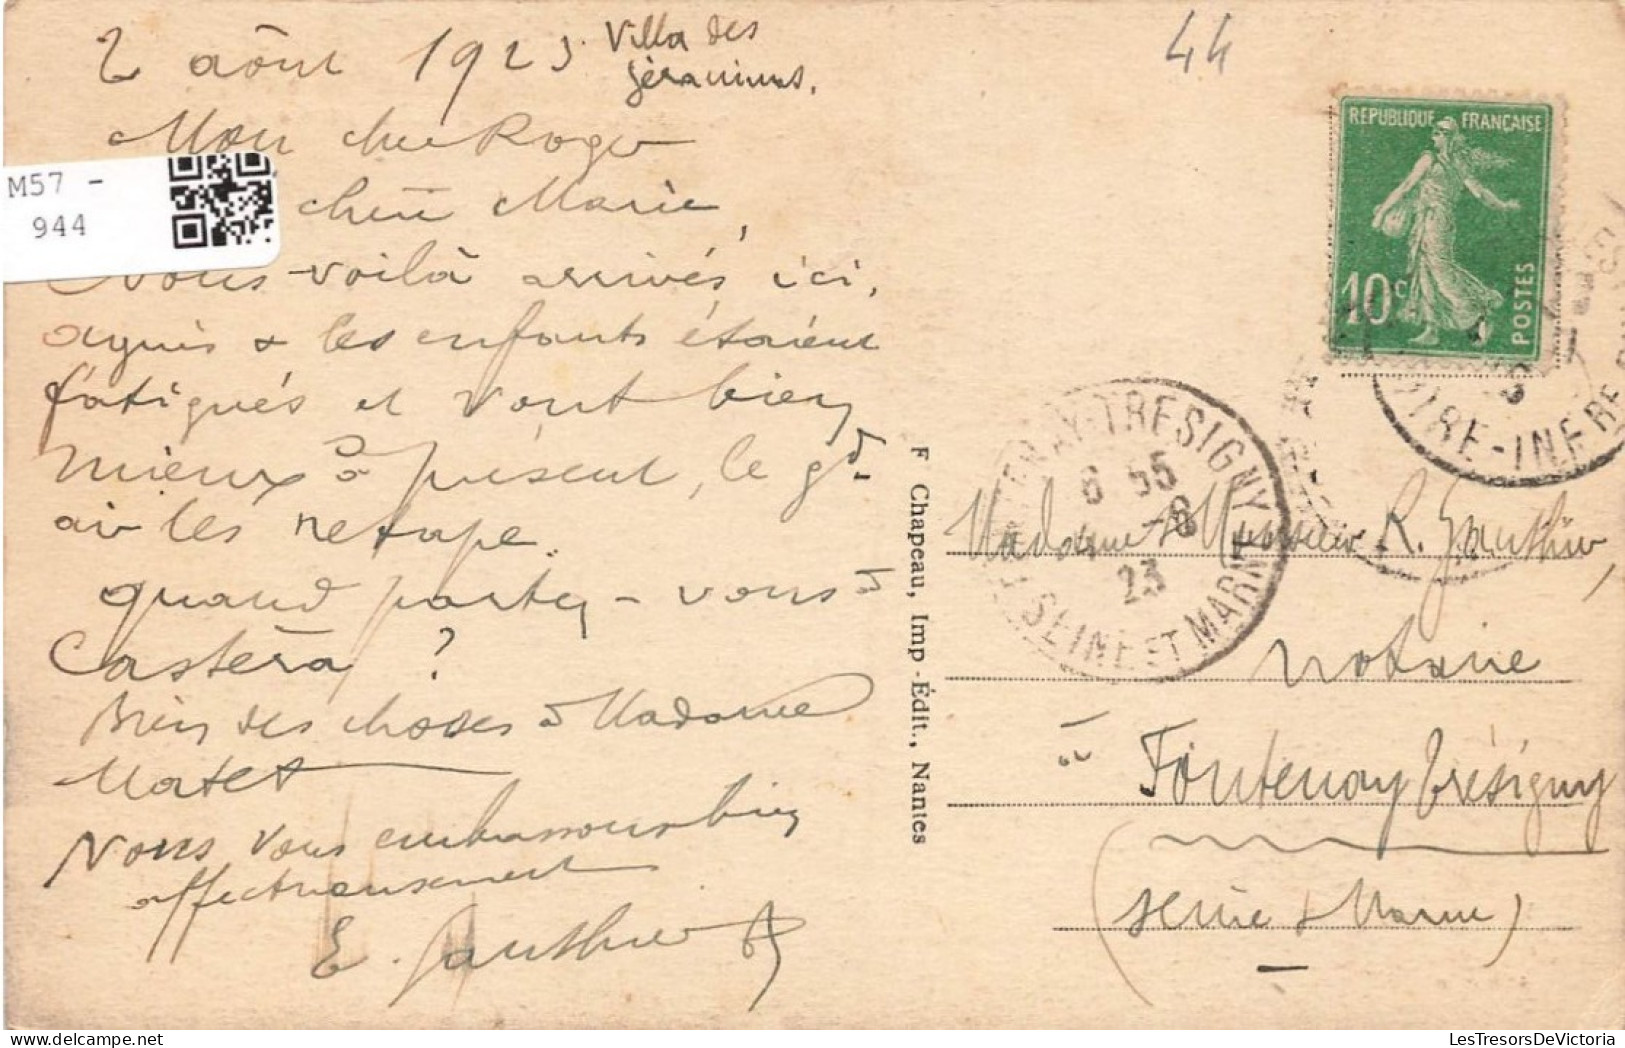 2 août 1923
Villa des
géraniums.
44
Mon cher Roger
chère Marie,
Nous voilà arrivés ici,
agnès & les enfants étaient
fatigués et vont bien
mieux à présent, le gd
air les retape.
quand partez-vous à
Castéra ?
Bien des choses à Madame
Matet
Nous vous embrassons bien
affectueusement
E. Gauthier
M57 -
944
F Chapeau, Imp -Édit., Nantes
REPUBLIQUE FRANÇAISE
10c
POSTES
FONTENAY-TRESIGNY
6 55
-8
23
SEINE ET MARNE
LOIRE-INFRE
Madame & Monsieur R. Gauthier,
notaire
à
Fontenay Trésigny
(Seine & Marne)
LesTresorsDeVictoria